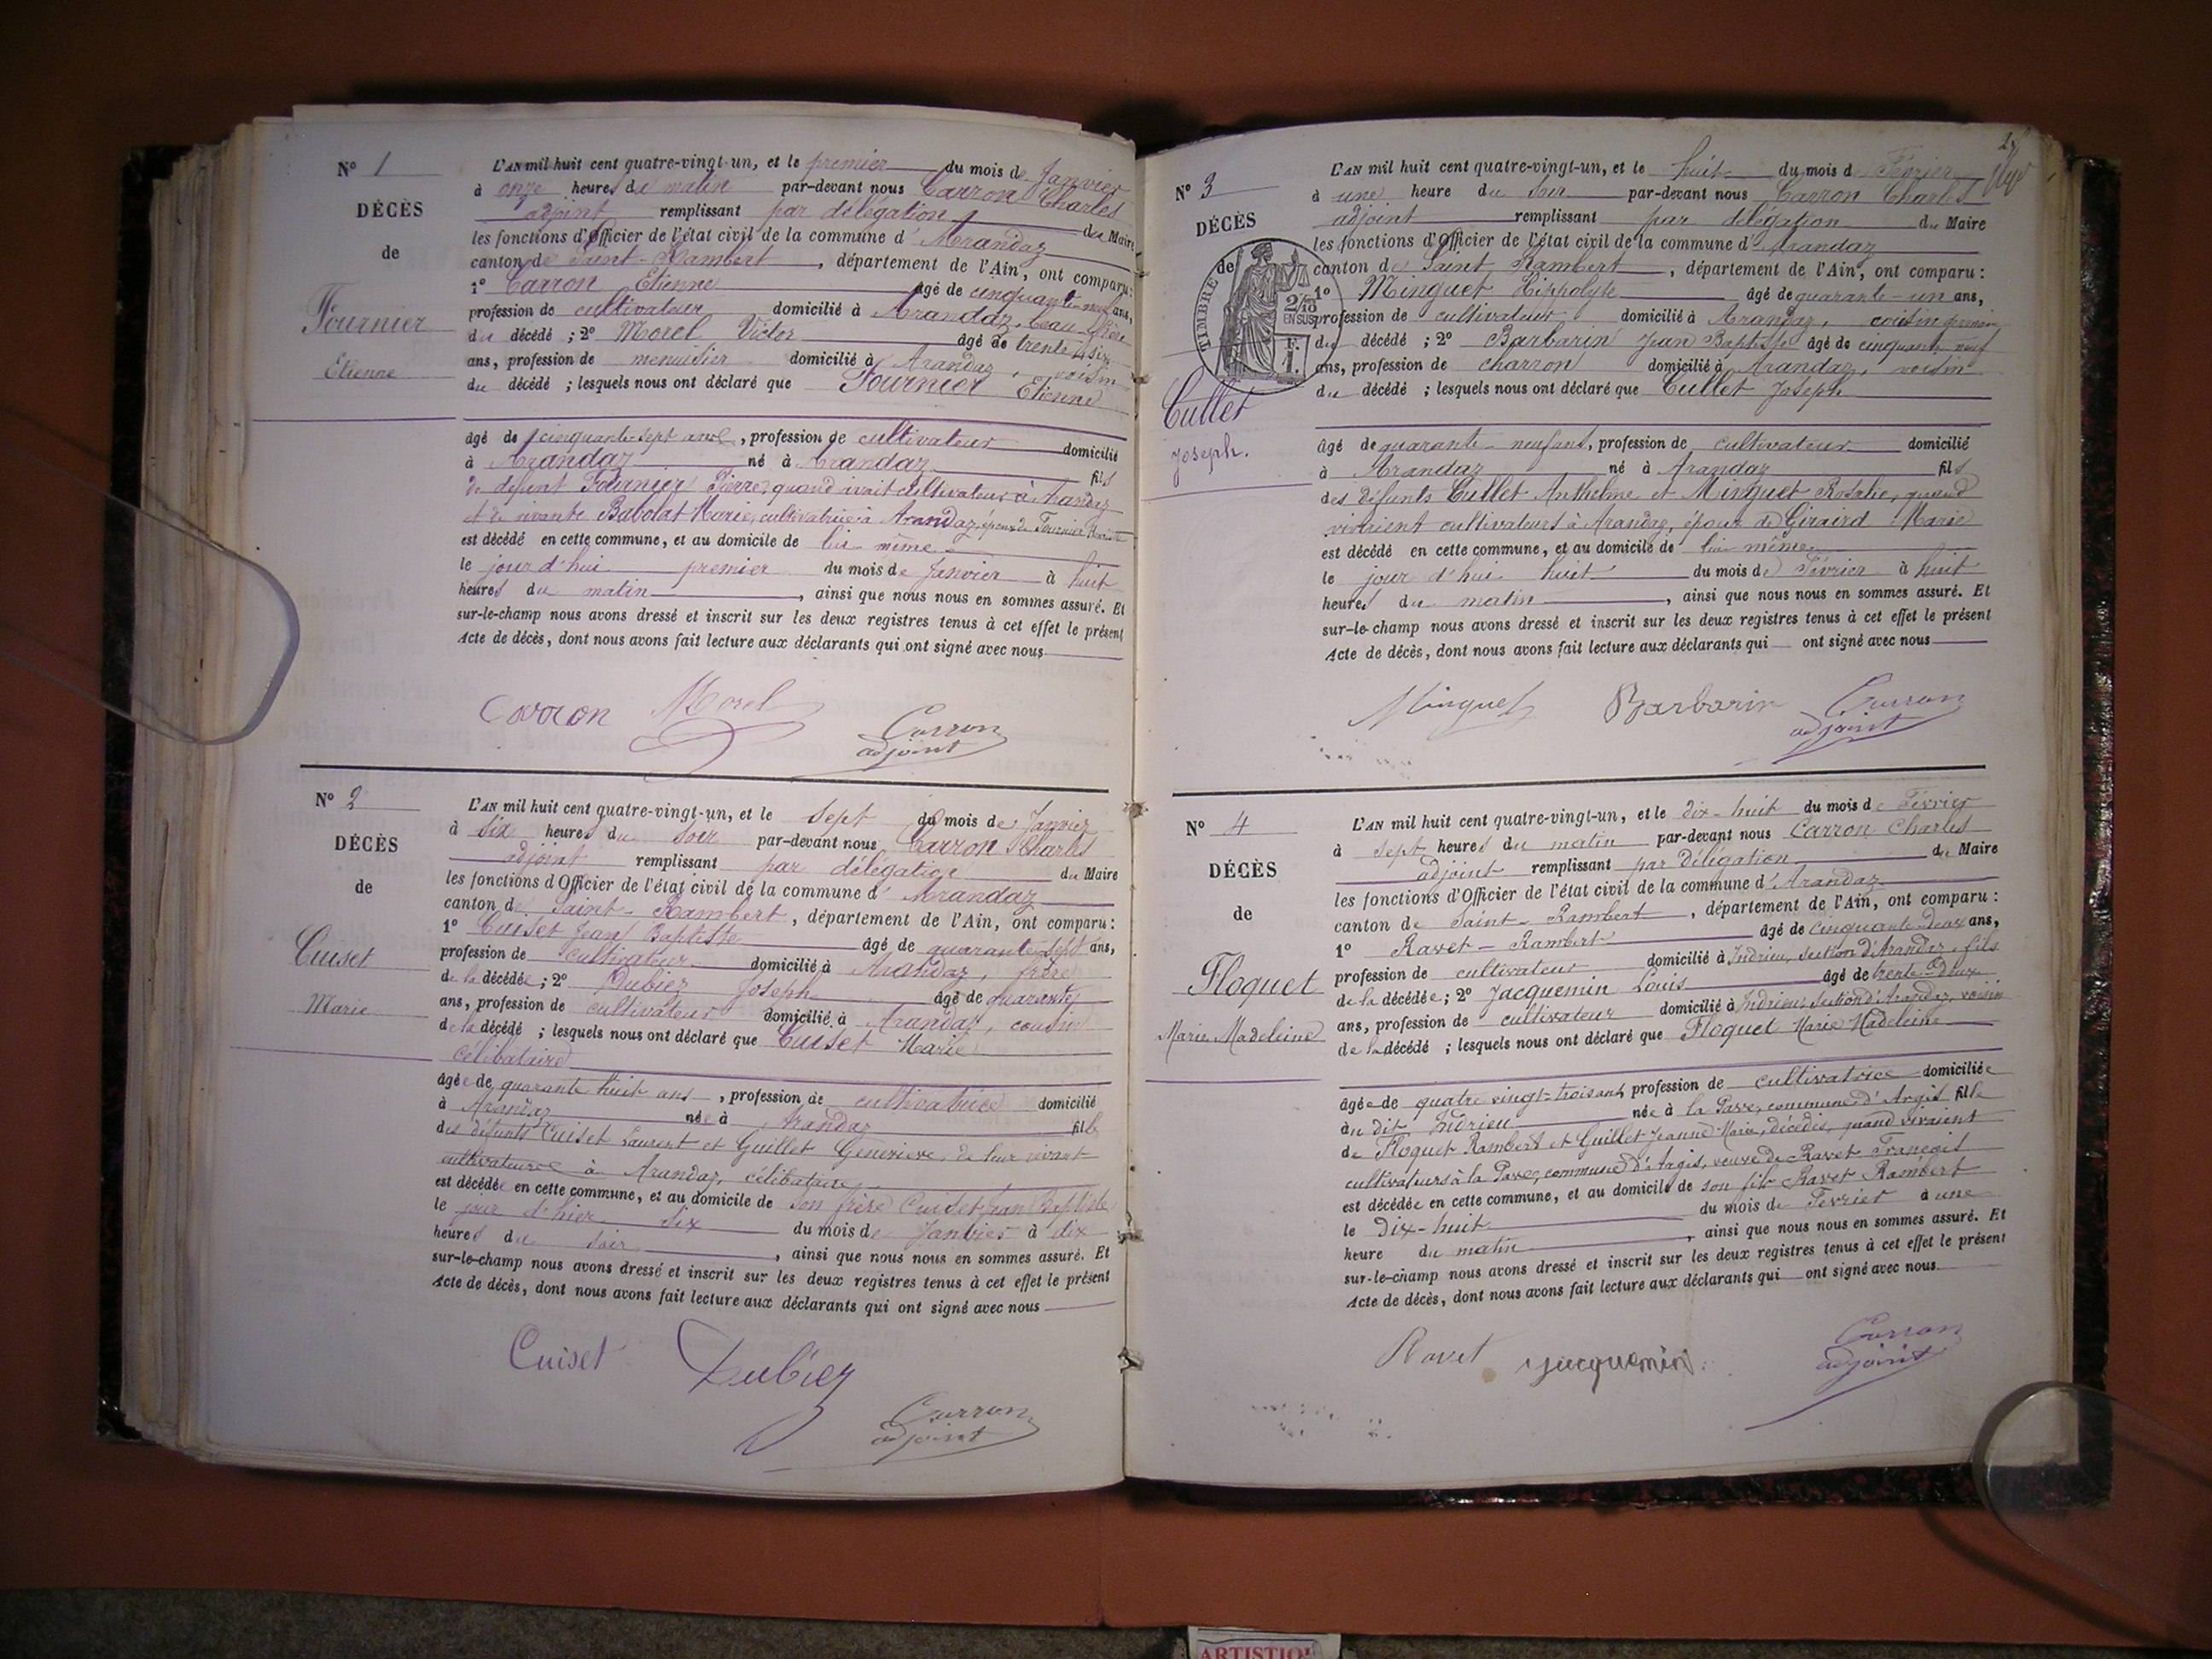 N° 1
DÉCÈS
de
Fournier
Etienne
L'AN mil huit cent quatre-vingt-un, et le premier du mois de Janvier
à onze heures du matin par-devant nous Carron Charles
adjoint remplissant par délégation du Maire
les fonctions d'Officier de l'état civil de la commune d'Arandaz
canton de Saint-Rambert, département de l'Ain, ont comparu:
1° Carron Etienne âgé de cinquante-neuf ans,
profession de cultivateur domicilié à Arandaz, beau-frère
du décédé ; 2° Morel Victor âgé de trente-six
ans, profession de menuisier domicilié à Arandaz, voisin
du décédé ; lesquels nous ont déclaré que Fournier Etienne
âgé de cinquante-sept ans, profession de cultivateur domicilié
à Arandaz né à Arandaz fils
de défunt Fournier Pierre, quand vivait cultivateur à Arandaz
et de vivante Babolat Marie, cultivatrice à Arandaz, époux de Fournier
est décédé en cette commune, et au domicile de lui même
le jour d'hui premier du mois de Janvier à huit
heures du matin, ainsi que nous nous en sommes assuré. Et
sur-le-champ nous avons dressé et inscrit sur les deux registres tenus à cet effet le présent
Acte de décès, dont nous avons fait lecture aux déclarants qui ont signé avec nous
Carron Morel Carron
adjoint
N° 2
DÉCÈS
de
Cuiset
Marie
L'AN mil huit cent quatre-vingt-un, et le sept du mois de Janvier
à six heures du soir par-devant nous Carron Charles
adjoint remplissant par délégation du Maire
les fonctions d'Officier de l'état civil de la commune d'Arandaz
canton de Saint-Rambert, département de l'Ain, ont comparu:
1° Cuiset Jean Baptiste âgé de quarante-sept ans,
profession de cultivateur domicilié à Arandaz, frère
de la décédée ; 2° Dubiez Joseph âgé de quarante
ans, profession de cultivateur domicilié à Arandaz, cousin
de la décédé ; lesquels nous ont déclaré que Cuiset Marie
célibataire
âgée de quarante huit ans, profession de cultivatrice domicilié
à Arandaz née à Arandaz fille
des défunts Cuiset Laurent et Guillet Geneviève, de leur vivant
cultivateurs à Arandaz, célibataire
est décédée en cette commune, et au domicile de son frère Cuiset Jean Baptiste
le jour d'hier six du mois de Janvier à dix
heures du soir, ainsi que nous nous en sommes assuré. Et
sur-le-champ nous avons dressé et inscrit sur les deux registres tenus à cet effet le présent
Acte de décès, dont nous avons fait lecture aux déclarants qui ont signé avec nous
Cuiset Dubiez
Carron
adjoint
N° 3
DÉCÈS
de
TIMBRE
2/10
EN SUS
F.
1.
Cullet
Joseph.
L'AN mil huit cent quatre-vingt-un, et le huit du mois de Février
à une heure du soir par-devant nous Carron Charles
adjoint remplissant par délégation du Maire
les fonctions d'Officier de l'état civil de la commune d'Arandaz
canton de Saint Rambert, département de l'Ain, ont comparu :
1° Minguet Hippolyte âgé de quarante-un ans,
profession de cultivateur domicilié à Arandaz, cousin germain
du décédé ; 2° Barbarin Jean Baptiste âgé de cinquante neuf
ans, profession de charron domicilié à Arandaz, voisin
du décédé ; lesquels nous ont déclaré que Cullet Joseph
âgé de quarante-neuf ans, profession de cultivateur domicilié
à Arandaz né à Arandaz fils
des défunts Cullet Anthelme et Minguet Rosalie, quand
vivaient cultivateurs à Arandaz, époux de Giraird Marie
est décédé en cette commune, et au domicile de lui même
le jour d'hui huit du mois de Février à huit
heures du matin, ainsi que nous nous en sommes assuré. Et
sur-le-champ nous avons dressé et inscrit sur les deux registres tenus à cet effet le présent
Acte de décès, dont nous avons fait lecture aux déclarants qui ont signé avec nous
Minguet Barbarin Carron
adjoint
N° 4
DÉCÈS
de
Floquet
Marie Madeleine
L'AN mil huit cent quatre-vingt-un, et le dix-huit du mois de Février
à sept heures du matin par-devant nous Carron Charles
adjoint remplissant par Délégation du Maire
les fonctions d'Officier de l'état civil de la commune d'Arandaz
canton de Saint-Rambert, département de l'Ain, ont comparu :
1° Ravet-Rambert âgé de cinquante-deux ans,
profession de cultivateur domicilié à Indrieu, section d'Arandaz, fils
de la décédée ; 2° Jacquemin Louis âgé de trente-deux
ans, profession de cultivateur domicilié à Indrieu, section d'Arandaz, voisin
de la décédé ; lesquels nous ont déclaré que Floquet Marie Madeleine
âgée de quatre vingt-trois ans, profession de cultivatrice domiciliée
au dit Indrieu née à la commune d'Argis fille
de Floquet Rambert et Guillet Jeanne Marie, décédés, quand vivaient
cultivateurs à la commune d'Argis, veuve de Ravet François
est décédée en cette commune, et au domicile de son fils Ravet Rambert
le Dix-huit du mois de Fevrier à une
heure du matin, ainsi que nous nous en sommes assuré. Et
sur-le-champ nous avons dressé et inscrit sur les deux registres tenus à cet effet le présent
Acte de décès, dont nous avons fait lecture aux déclarants qui ont signé avec nous
Ravet Jacquemin Carron
adjoint
ARTISTIQ